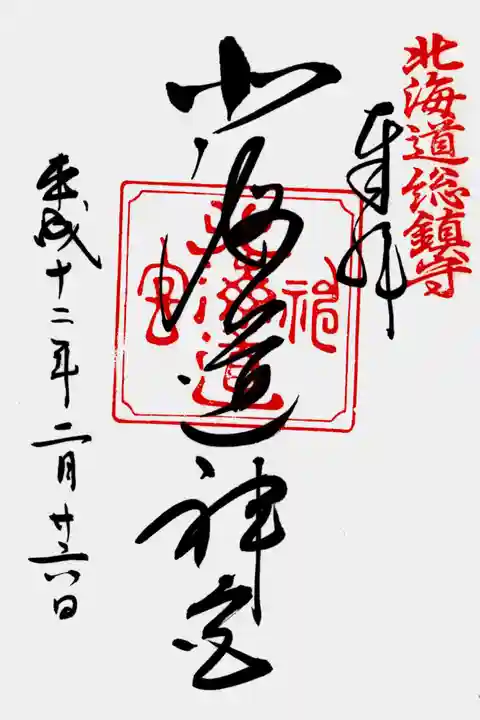 北海道総鎮守
奉拝
北海道神宮
北海道
神
宮
平成十二年二月廿六日